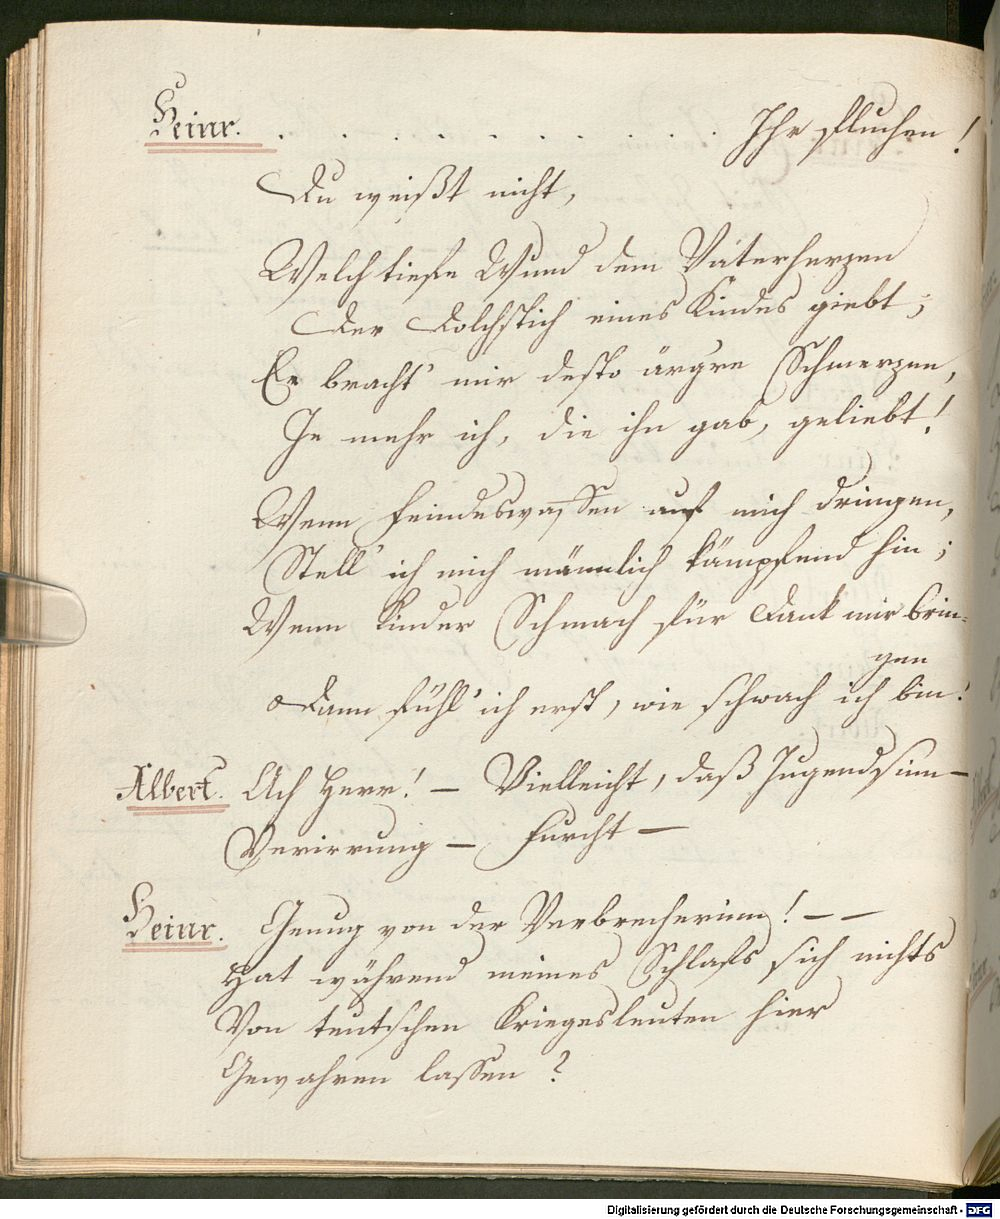 Heinr. . . . . . . . . . . . Ihr fluchen!
Du weißt nicht,
Welch tiefe Wund dem Vaterherzen
Der Dolchstich eines Kindes giebt;
Er bracht' mir desto ärg're Schmerzen,
Je mehr ich, die ihn gab, geliebt!
Wenn Feindeswaffen auf mich dringen,
Stell' ich mich männlich kämpfend hin;
Wenn Kinder Schmach für Dank mir brin-
gen
Dann fühl' ich erst, wie schwach ich bin!
Albert. Ach Herr! — Vielleicht, daß Jugendsinn —
Verirrung — Furcht —
Heinr. Genug von der Verbrecherinn! — —
Hat während meines Schlafs sich nichts
Von teutschen Kriegesleuten hier
Gewahren lassen?
Digitalisierung gefördert durch die Deutsche Forschungsgemeinschaft - DFG